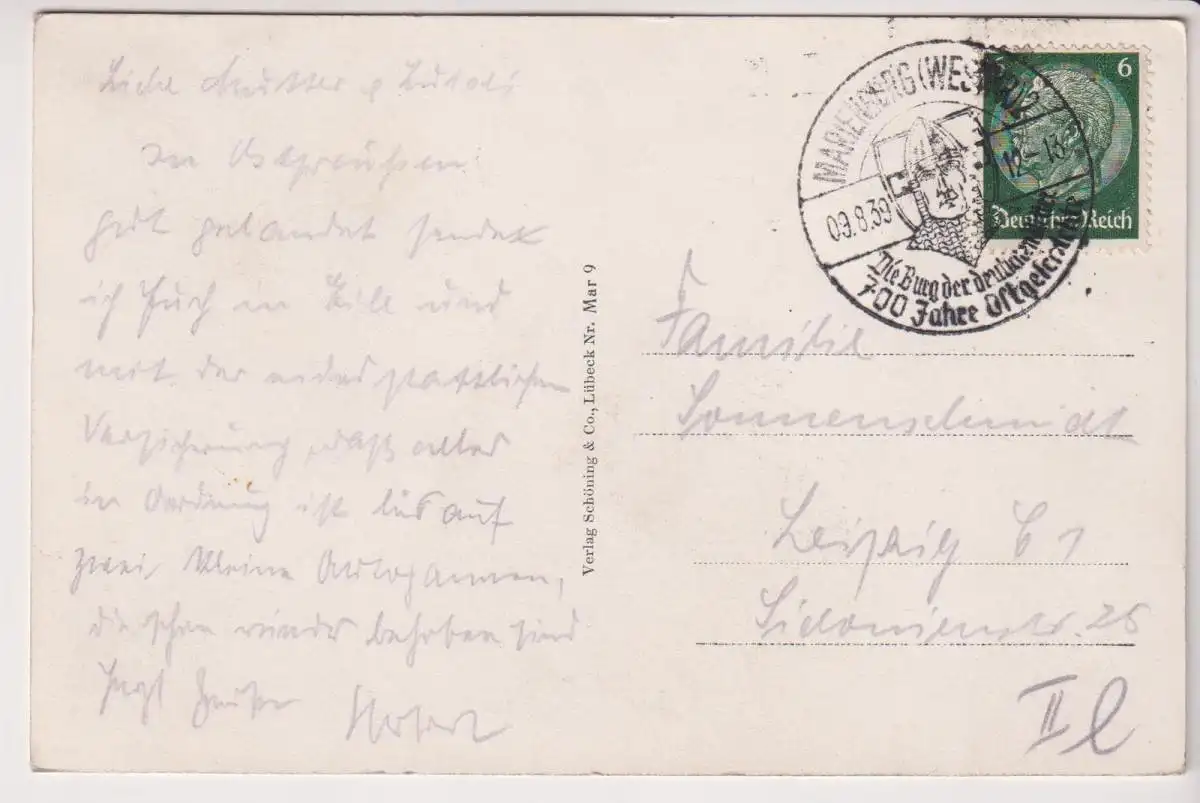 Liebe Mutter &
In Ostpreußen
gut gelandet sendet
ich Euch in Eile und
mit der eidesstattlichen
Versicherung, daß alles
in Ordnung ist bis auf
zwei kleine Autopannen,
die schon wieder behoben sind
Herzl. Grüße Herbert
Verlag Schöning & Co., Lübeck Nr. Mar 9
MARIENBURG (WESTPR)2
09.8.39 12-13
Die Burg der deutschen
700 Jahre Ostgeschichte
6
Deutsches Reich
Familie
Sonnenschmidt
Leipzig C 1
Sidonienstr. 26
II l